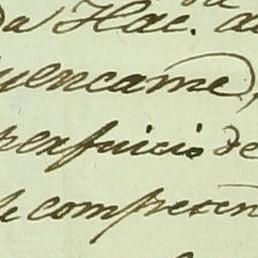 da Hac. a
uencame,
perjuicio de
le compresen